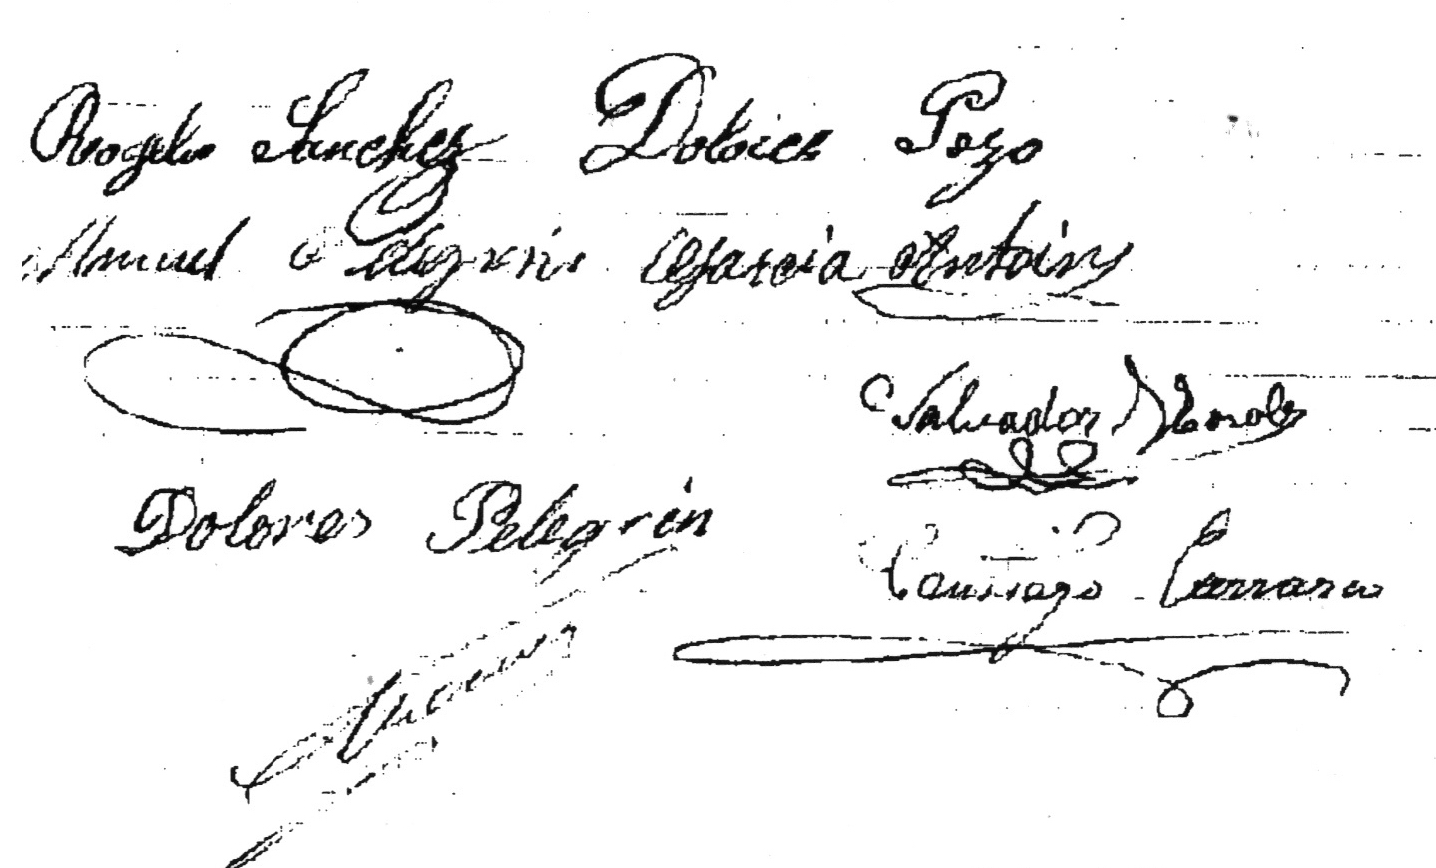 Rogelio Sanchez Dolores Pozo
Manuel Pelegrin Garcia Antoin
Salvador Morales
Dolores Pelegrin
Santiago Carrasco